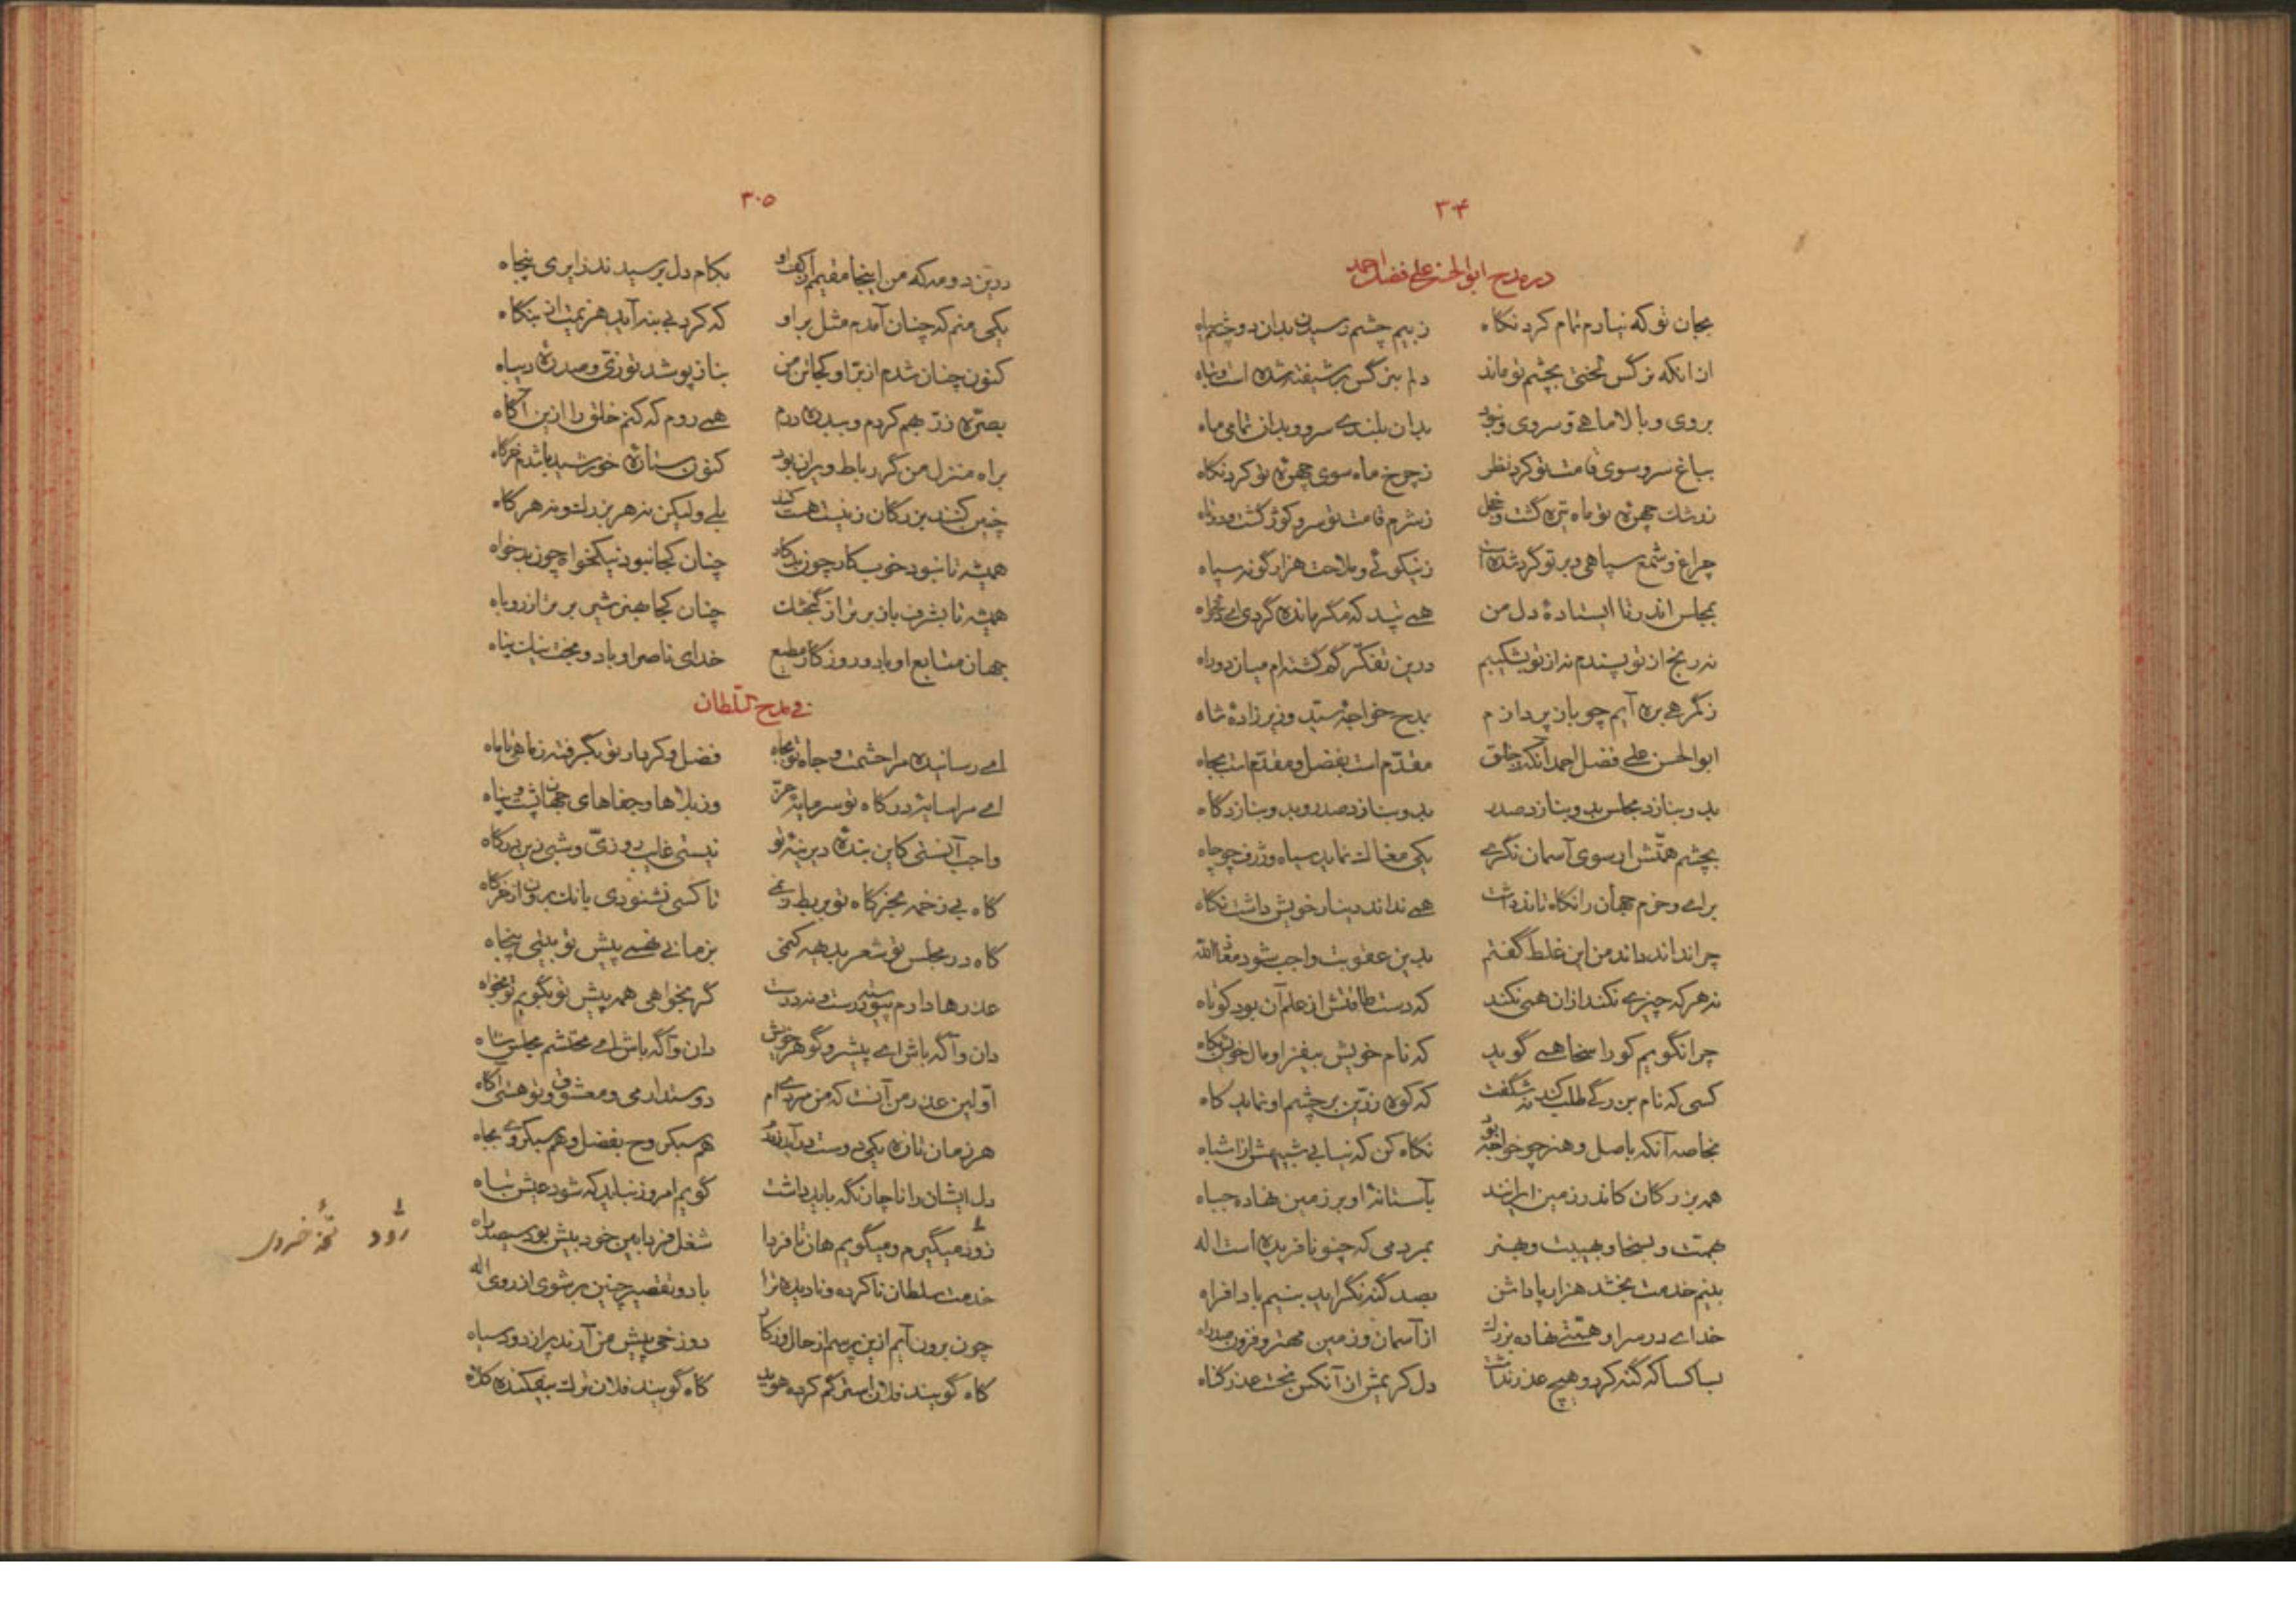 ۳۰۴
در مدح ابوالحسن علی فضل احمد
بجان تو که نیارم تمام کرد نکاه ز بیم چشم رسیدن بدان دو چشم سیاه
از انکه نرکس لختی بچشم تو ماند دلم بنرگس بر شیفته شده است تباه
بروی و بالا ماهی و سروی و نبود بدان بلندی سرو و بدان تمامی ماه
بباغ سرو سوی قامت تو کرد نظر ز چرخ ماه سوی چهرهٔ تو کرد نکاه
ز رشک چهرهٔ تو ماه تیره گشت و خجل ز شرم قامت تو سرو کوژ گشت و دوتاه
چراغ و شمع سپاهی و بر تو کرد شده است ز نیکوئی و ملاحت هزار گونه سپاه
بمجلس اندر تا ایستادهٔ دل من همی تپد که مگر مانده گردی ای دلخواه
نه رنج از تو پسندم نه از تو بشکیبم درین تفکر گم گشته‌ام میان دو راه
ز گمرهی بره آیم چو باز پردازم بمدح خواجهٔ سید وزیر زادهٔ شاه
ابوالحسن علی فضل احمد آنکه ز خلق مقدّم است بفضل و مقدّم است بجاه
بدو بنازد مجلس بدو بنازد صدر بدو بنازد صدر و بدو بنازد کاه
بچشم همتش ار سوی آسمان نگری یکی مغاک نماید سیاه و ژرف چو چاه
برای و حزم جهان را نکاه تاند داشت همی نداند دینار خویش داشت نکاه
چرا نداند داند من این غلط گفتم بدین عقوبت واجب شود معاذالله
نه هر که چیزی نکند از ان همی نکند که دست طاقتش از علم آن بود کوتاه
چرا نگویم کو را سخا همی گوید که نام خویش بیفزا و مال خویش بکاه
کسی که نام بزرگی طلب کند نه شگفت که کوه زرّین بر چشم او نماید کاه
بخاصه آنکه باصل و هنر چو خواجه بود نکاه کن که نیابی شبیهش از اشباه
همه بزرکان کاندر زمین ایرانند بآستانهٔ او بر زمین نهاده جباه
بهمت و بسخا و بهیبت و بهنر بمردمی که چنو نافریده است اله
بنیم خدمت بخشد هزار پاداشن بصد گنه نگراید بنیم بادافراه
خدای در سر او همتی نهاده بزرک از آسمان و زمین مهتر و فزون صد راه
بسا کسا که گنه کرد و هیچ عذر نداشت دل کریمش از آنکس بخواست عذر گناه
۳۰۵
درین دو مه که من اینجا مقیمم از کف او بکام دل برسیدند زایری پنجاه
یکی منم که چنان آمدم مثل بر او که کرد بی بنه آید هزیمت از بنکاه
کنون چنان شدم از برّ او کجا تن من بناز پوشد توزی و صدرهٔ دیباه
بصرّه زرّ بهم کردم و ببدره درم همی روم که کنم خلق را ازین آکاه
براه منزل من گر رباط ویران بود کنون ستارهٔ خورشید باشدم خرگاه
چنین کنند بزرکان ز نیست هست کنند بلی ولیکن نه هر بزرک و نه هر کاه
همیشه تا نبود خوب کار چون بدکار چنان کجا نبود نیکخواه چون بدخواه
همیشه تا بشرف باز برتر از گنجشک چنان کجا بهنر شیر برتر از روباه
جهان متابع او باد و روزکار مطیع خدای ناصر او باد و بخت نیک پناه
فی مدح السّلطان
ای رسانیده مرا حشمت و جاه تو بجاه فضل و کردار تو بگرفته ز ماهی تا ماه
ای مرا سایهٔ درکاه تو سرمایهٔ عزّ وز بلاها و جفاهای جهان پشت و پناه
واجب آنستی کاین بندهٔ دیرینهٔ تو نیستی غایب روزیّ و شبی زین درکاه
کاه بی زخمه بخرکاه تو بربط زدمی تا کسی نشنودی بانک برون از خرکاه
کاه در مجلس تو شعر بدیهه کنمی بزمانی غمسی پیش تو بیتی پنجاه
عذرها دارم پیوسته درست و نه درست گر بخواهی همه پیش تو بگویم تو بخواه
دان و آگه باش ای پیشرو گوهر خویش دان و آگه باش ای محتشم مجلس شاه
اوّلین عذر من آنست که من مردی‌ام دوستدار می و معشوق و تو هستی آگاه
هر زمان تازه یکی دوست درآید ز درم هم سبکروح بفضل و هم سبکروی بجاه
دل ایشان را ناچار نگه باید داشت گویم امروز نباید که شود عیش تباه
رود میگیرم و میگویم هان تا فردا شغل فردا بین خود بیش بود سیصد راه
خدمت سلطان ناکرده و نادیده ترا با دو تقصیر چنین برشوی از روی اله
چون برون آیم ازین پرسم از حال وز کار دوزخی پیش من آرند پر از دود سیاه
کاه گویند فلان استر گم کرد هوید کاه گویند فلان ترک بیفکنده کلاه
رود